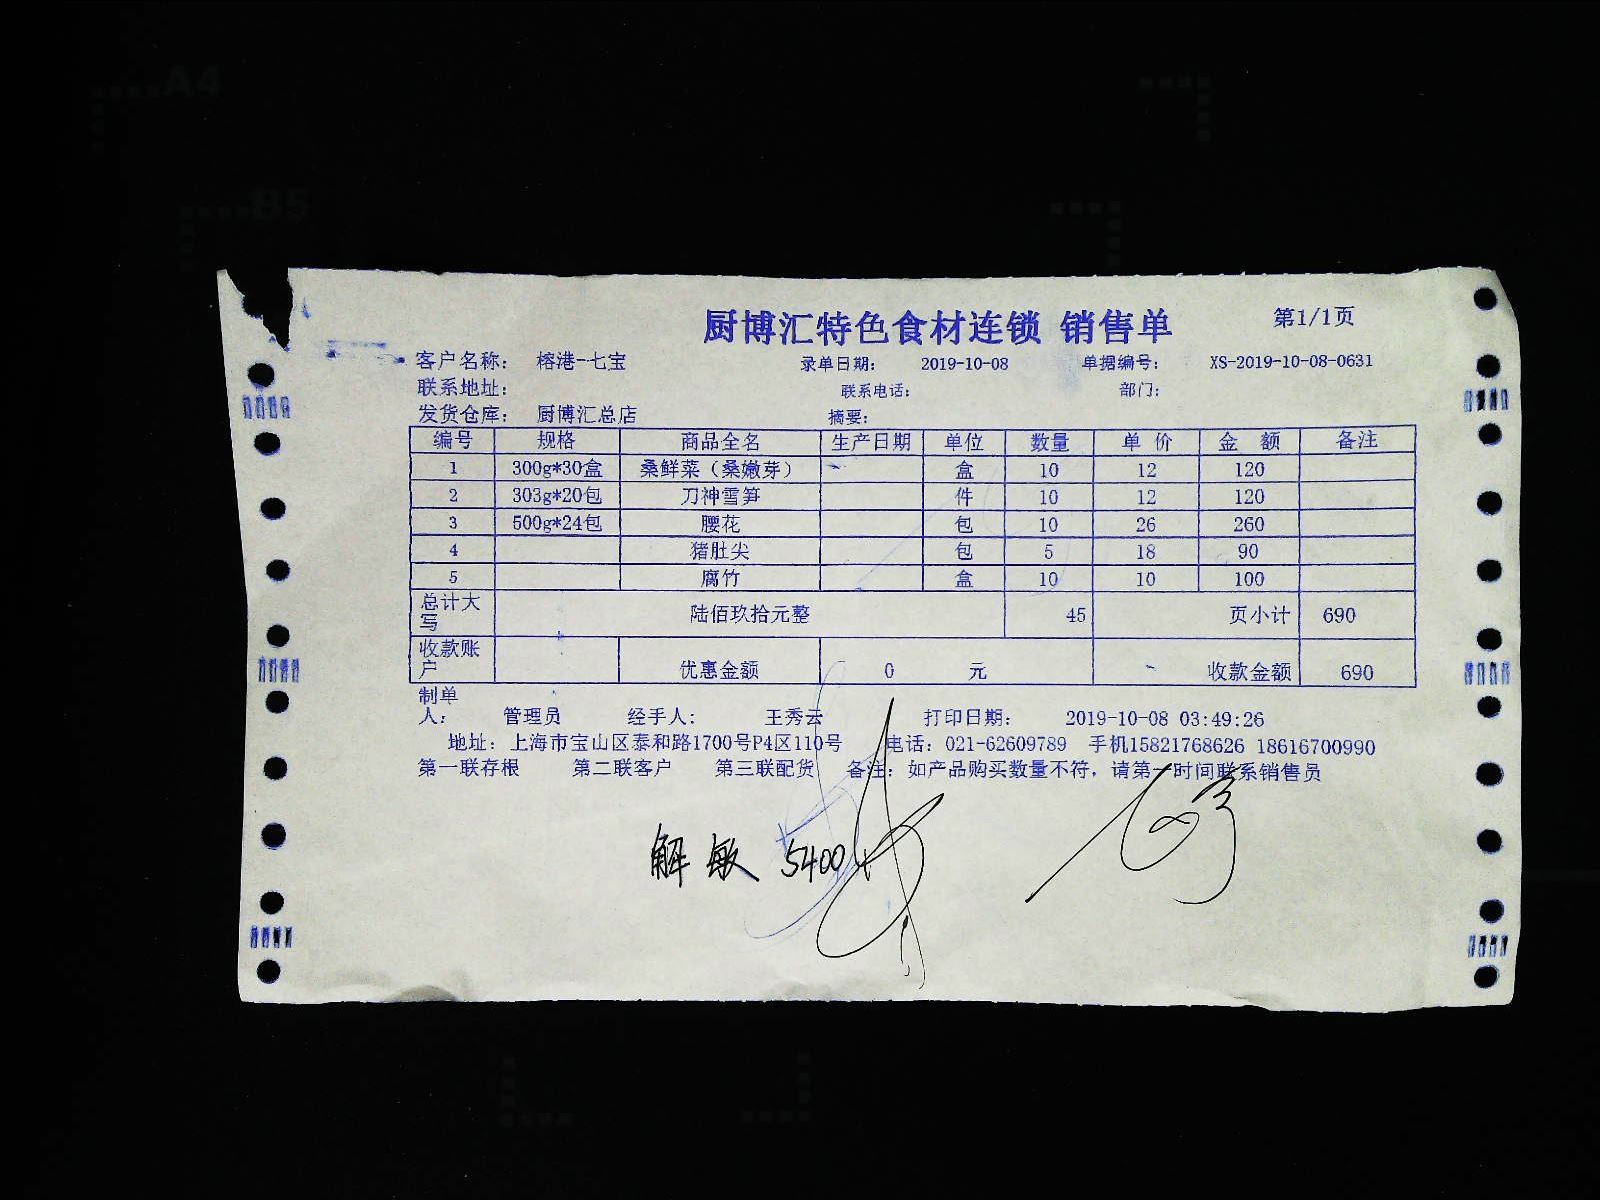 A4
B5
厨博汇特色食材连锁 销售单 第1/1页
客户名称： 榕港-七宝 录单日期： 2019-10-08 单据编号： XS-2019-10-08-0631
联系地址： 联系电话： 部门：
发货仓库： 厨博汇总店 摘要：
编号 规格 商品全名 生产日期 单位 数量 单 价 金 额 备注
1 300g*30盒 桑鲜菜（桑嫩芽） 盒 10 12 120
2 303g*20包 刀神雪笋 件 10 12 120
3 500g*24包 腰花 包 10 26 260
4 猪肚尖 包 5 18 90
5 腐竹 盒 10 10 100
总计大写 陆佰玖拾元整 45 页小计 690
收款账户 优惠金额 0 元 收款金额 690
制单人： 管理员 经手人： 王秀云 打印日期： 2019-10-08 03:49:26
地址：上海市宝山区泰和路1700号P4区110号 电话：021-62609789 手机15821768626 18616700990
第一联存根 第二联客户 第三联配货 备注：如产品购买数量不符，请第一时间联系销售员
解敏 5400